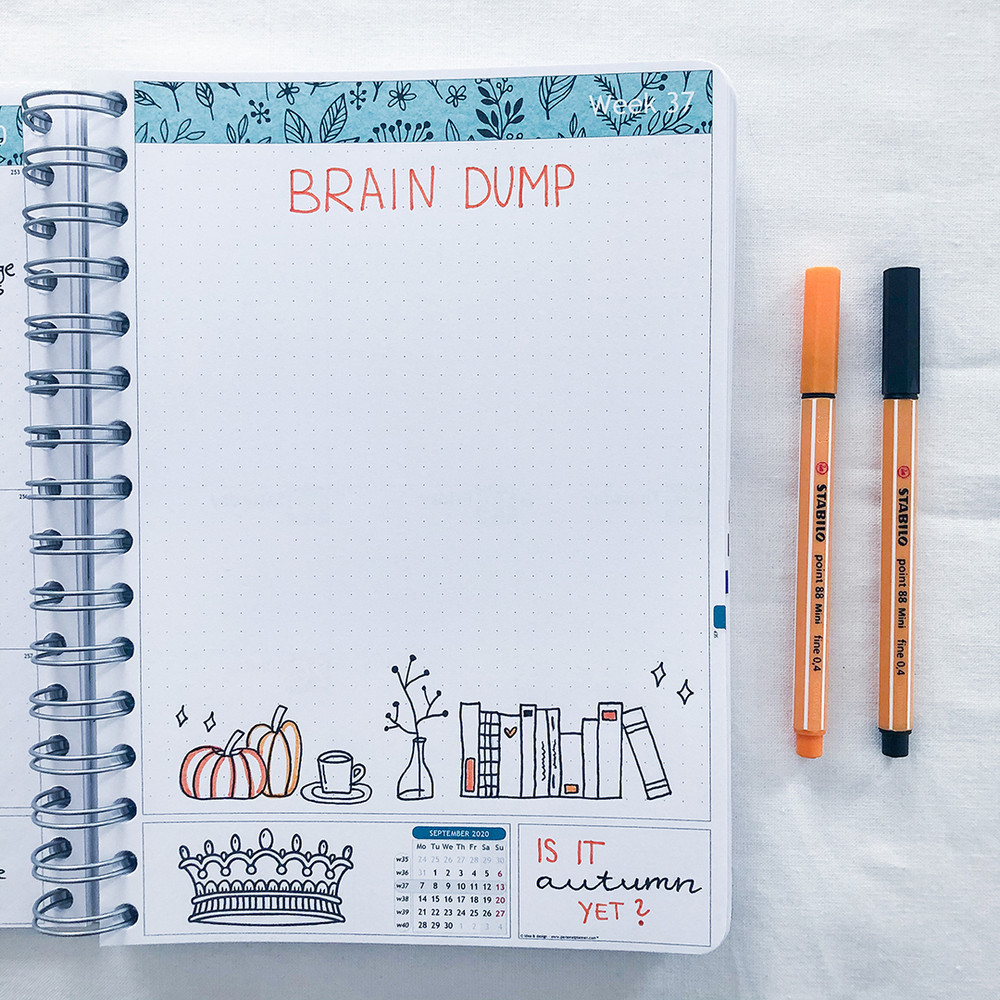 Week 37
BRAIN DUMP
253
256
257
SEPTEMBER 2020
Mo Tu We Th Fr Sa Su
w35 24 25 26 27 28 29 30
w36 31 1 2 3 4 5 6
w37 7 8 9 10 11 12 13
w38 14 15 16 17 18 19 20
w39 21 22 23 24 25 26 27
w40 28 29 30 1 2 3 4
IS IT
autumn
YET?
STABILO point 88 Mini fine 0,4
STABILO point 88 Mini fine 0,4